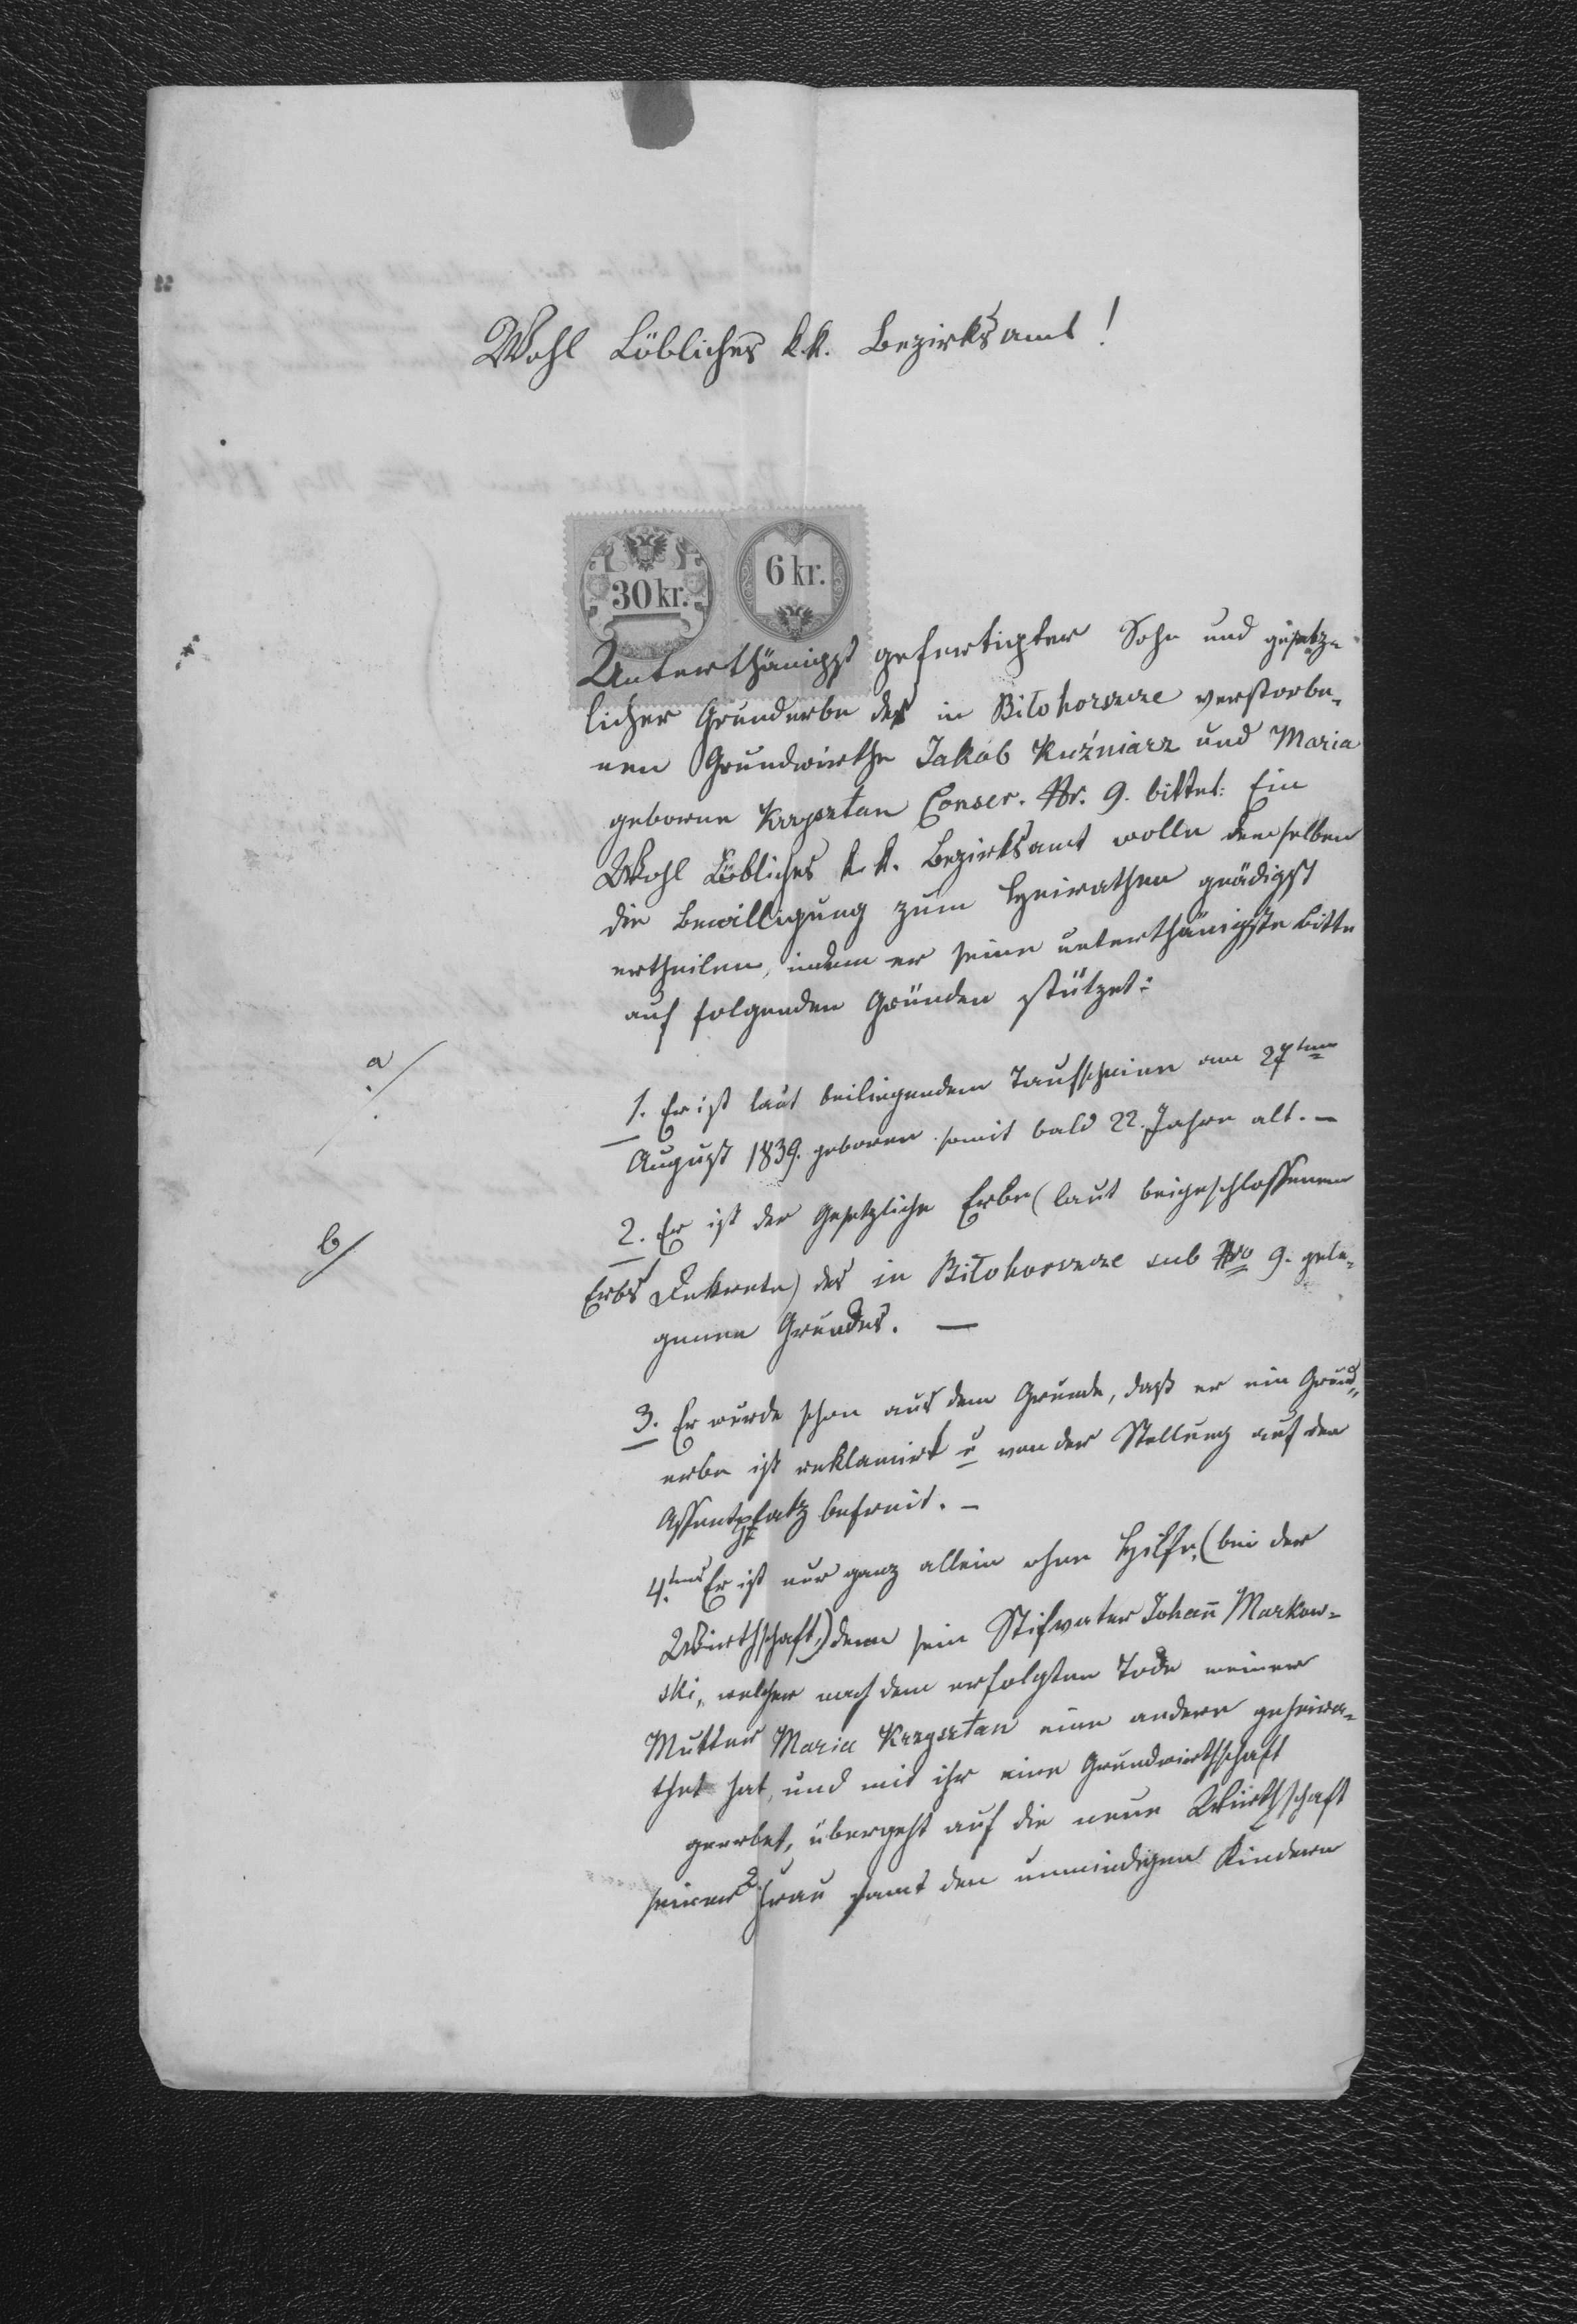 Wohl Löbliches k.k. Bezirksamt!
30 kr. 6 kr.
Unterthänigst gefertigter Sohn und gesetz-
licher Grunderbe des in Biłohorszcze verstorbe-
nen Grundwirthe Jakob Kuźniarz und Maria
geborne Krzysztan Conscr. Nr. 9. bittet: Ein
Wohl Löbliches k.k. Bezirksamt wolle demselben
die Bewilligung zum Heirathen gnädigst
ertheilen, indem er seine unterthänigste Bitte
auf folgenden Gründen stützet:
a/
1. Er ist laut beiliegendem Taufscheine am 27ten
August 1839. geboren somit bald 22. Jahre alt. —
b/
2. Er ist der Gesetzliche Erbe (laut beigeschlossenem
Erbs Dekrete) des in Biłohorszcze sub Nro 9. gele-
genen Grundes. —
3. Er wurde schon aus dem Grunde, daß er ein Grund-
erbe ist reklamirt u von der Stellung auf den
Assentplatz befreit. —
4tens Er ist nur ganz allein ohne Hilfe, (bei der
Wirthschaft,) denn sein Stifvater Johann Markow-
ski, welcher nach dem erfolgten Tode meiner
Mutter Maria Krzysztan eine andere geheira-
thet hat, und mit ihr eine Grundwirthschaft
geerbet, übergeht auf die neue Wirthschaft
seiner 2 Frau samt den unmündigen Kindern